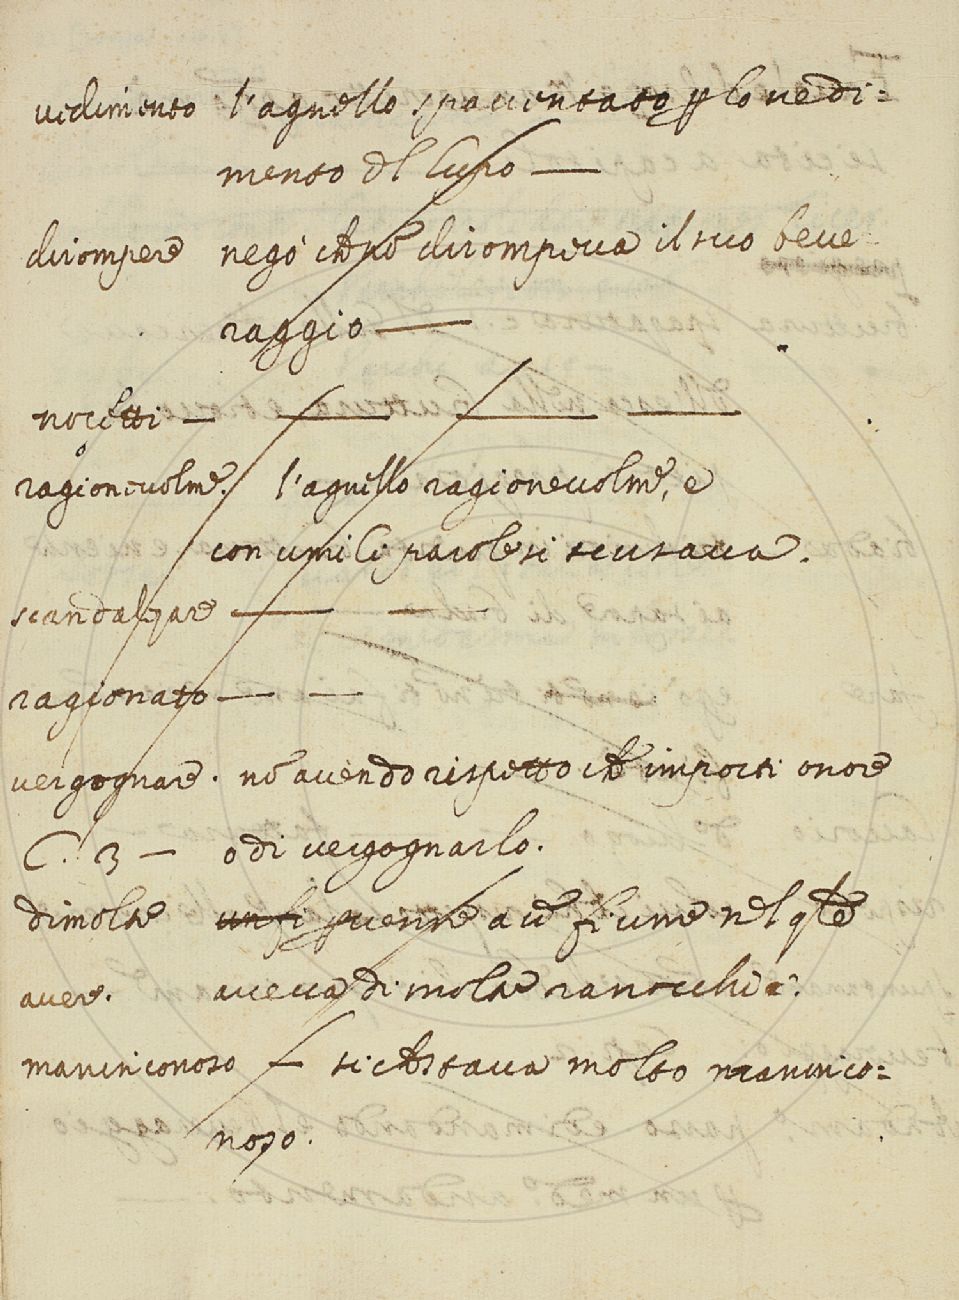 vedimento l'agnello spaventato p lo vedi=
mento dl Lupo —
dirompere negò ch nō dirompeva il suo beve
raggio —
nocetti — — — —
ragionevolmē. l'agnello ragionevolmē, e
con umili parole si scusava.
scandalzare — —
ragionato — —
vergognare. nō avendo rispetto chē importi onore
C. 3 — o di vergognarlo.
dimolte un fi pvenne a ū fiume nel qle
avere. aveva di molte ranocchie:
maninconoso — sichē stava molto maninco=
noso.